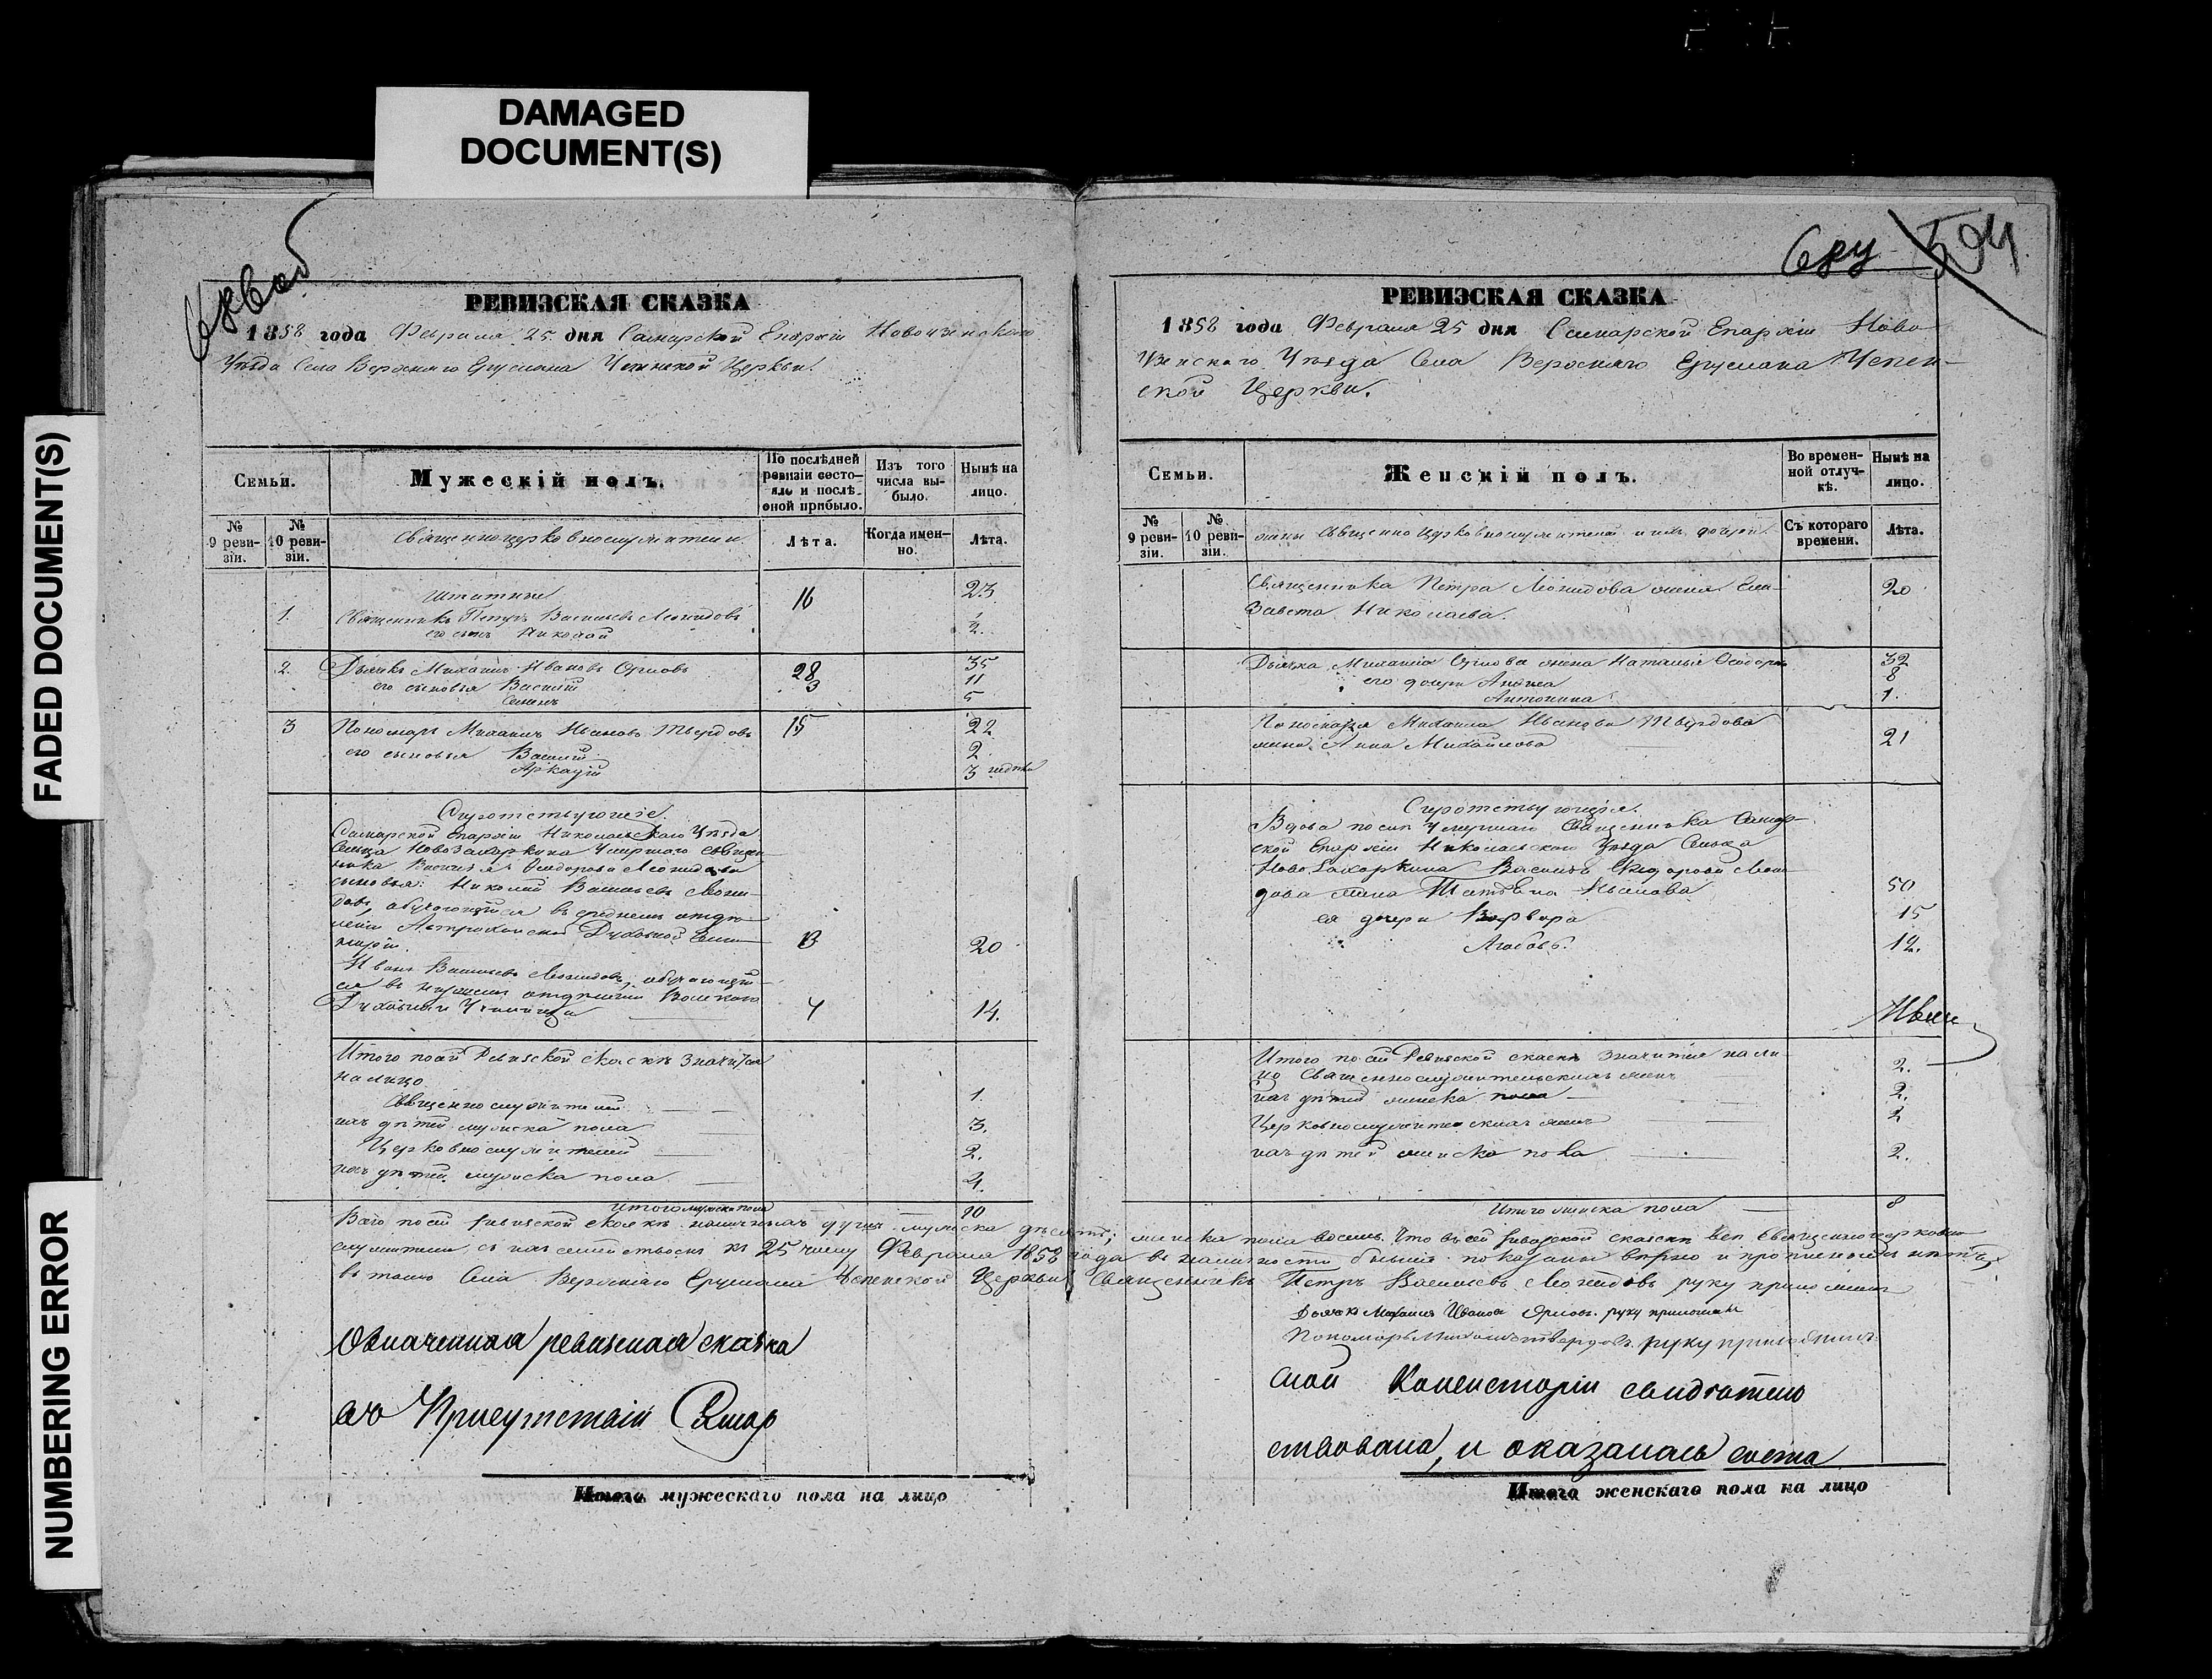 DAMAGED
DOCUMENT(S)
FADED DOCUMENT(S)
NUMBERING ERROR
РЕВИЗСКАЯ СКАЗКА
1858 года Февраля 25 дня Самарской Епархіи Новоузенскаго
Уѣзда Села Верхняго Еруслана Успенской Церкви.
Семьи.
Мужескій полъ.
По послѣдней
ревизіи состо-
яло и послѣ
оной прибыло.
Изъ того
числа вы-
было.
Нынѣ на
лицо.
№
9 реви-
зіи.
№
10 реви-
зіи.
Священноцерковнослужители.
Лѣта.
Когда имен-
но.
Лѣта.
Штатные
1. Священникъ Петръ Васильевъ Леонидовъ 16 23
его сынъ Николай 2.
2. Дьячекъ Михаилъ Ивановъ Орловъ 28 35
его сыновья Василій 3 11
Семенъ 5
3 Пономарь Михаилъ Ивановъ Твердовъ 15 22
его сыновья Василій 2
Аркадій 3 недѣли
Сиротствующіе.
Самарской Епархіи Николаевскаго Уѣзда
Сельца Новозахаркина Умершаго Священ-
ника Василья Ѳеодорова Леонидова
сыновья: Николай Васильевъ Леони-
довъ, обучающійся въ среднемъ отдѣ-
леніи Астраханской Духовной Семи-
наріи. 13 20
Иванъ Васильевъ Леонидовъ, обучающій-
ся въ низшемъ отдѣленіи Вольскаго
Духовнаго Училища 7 14.
Итого по сей Ревизской сказкѣ значится
на лицо
Священнослужителей 1.
ихъ дѣтей мужска пола 3.
Церковнослужителей 2.
ихъ дѣтей мужска пола 4.
Итого мужска пола 10
РЕВИЗСКАЯ СКАЗКА
1858 года Февраля 25 дня Самарской Епархіи Ново-
узенскаго Уѣзда Села Верхняго Еруслана Успен-
ской Церкви.
Семьи.
Женскій полъ.
Во времен-
ной отлуч-
кѣ.
Нынѣ на
лицо.
№
9 реви-
зіи.
№
10 реви-
зіи.
жены Священно церковнослужителей и ихъ дочери.
Съ котораго
времени.
Лѣта.
Священника Петра Леонидова жена Ели- 20
завета Николаева.
Дьячка Михаила Орлова жена Наталья Ѳеодорова 32
его дочери 8
Антонина 1.
Пономаря Михаила Иванова Твердова
жена Анна Михайлова 21
Сиротствующія.
Вдова послѣ Умершаго Священника Самар-
ской Епархіи Николаевскаго Уѣзда Сельца
Ново Захаркина Василья Ѳедорова Леони-
дова жена Татьяна Иванова 50
ея дочери Варвара 15
Любовь. 12.
Итого по сей Ревизской сказкѣ значится на ли-
цо Священнослужительскихъ женъ 2.
ихъ дѣтей женска пола 2.
Церковнослужительскихъ женъ 2
ихъ дѣтей женска пола 2.
Итого женска пола 8
Всего по сей ревизской сказкѣ наличныхъ душъ мужска десять, женска пола восемь. Что въ сей ревизской сказкѣ все Священноцерковно
служители съ ихъ семействомъ къ 25 числу Февраля 1858 года въ наличности бывшіе показаны вѣрно и прописныхъ нѣтъ,
въ томъ Села Верхняго Еруслана Успенской Церкви Священникъ Петръ Васильевъ Леонидовъ руку приложилъ
Дьячекъ Михаилъ Ивановъ Орловъ руку приложилъ
Пономарь Михаилъ Твердовъ руку приложилъ
Означенная ревизская сказка
въ Присутствіи Самар
ской Консисторіи свидѣтель
ствована, и оказалась соста
Итого мужескаго пола на лицо
Итого женскаго пола на лицо